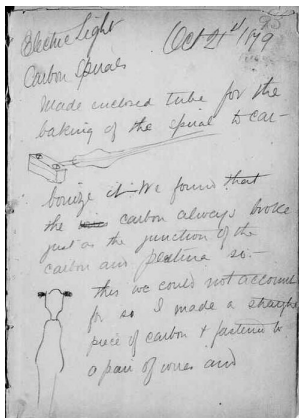 Electric Light
Oct 21st 1879
Carbon Spirals
Made enclosed tube for the
baking of the spiral to car-
bonize it — We found that
the carbon always broke
just as the junction of the
carbon and platina so.-
this we could not account
for so I made a straight
piece of carbon + fastened to
a pair of wires and